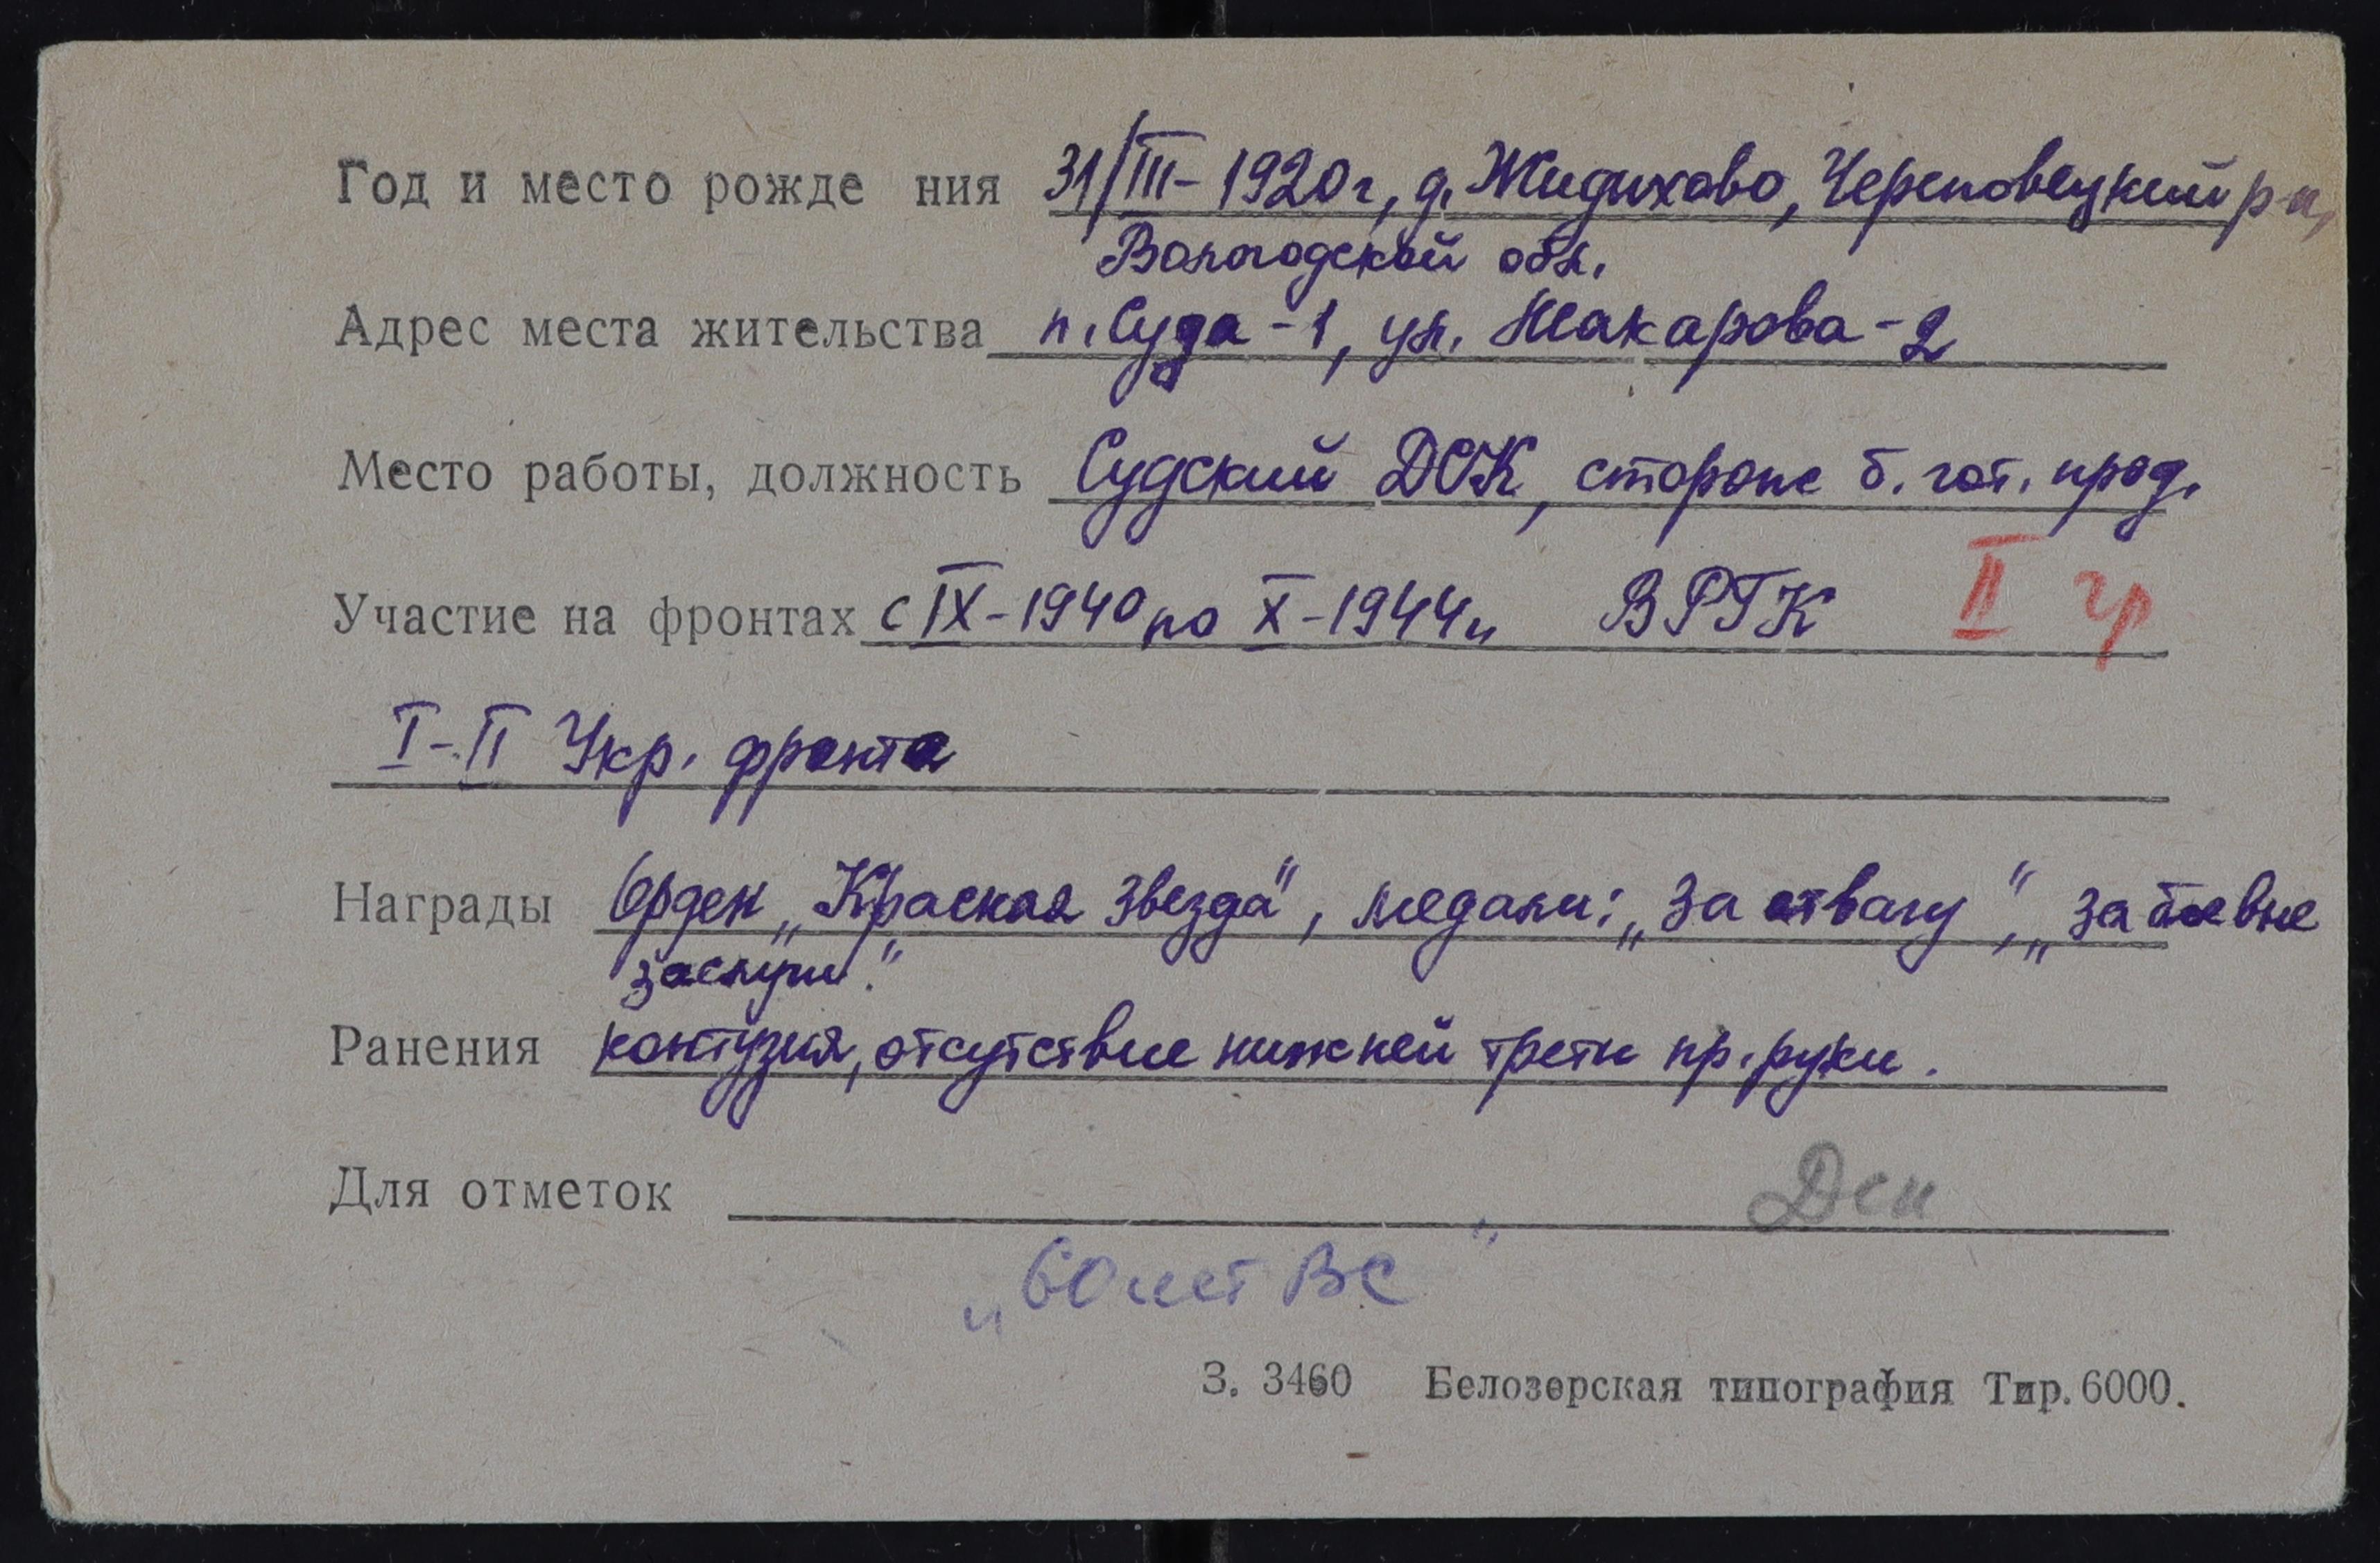 Год и место рожде ния 31/III-1920г, д. Жидихово, Череповецкий р-н,
Вологодской обл.
Адрес места жительства п. Суда-1, ул. Макарова-2
Место работы, должность Судский ДОК, сторож б. гот. прод.
Участие на фронтах с IX-1940 по X-1944 ВРГК II гр
I-II Укр. фронта
Награды Орден „Красная Звезда", медали: „За отвагу", „За боевые
заслуги".
Ранения контузия, отсутствие нижней трети пр. руки.
Для отметок
„60 лет ВС"
З. 3460 Белозерская типография Тир. 6000.